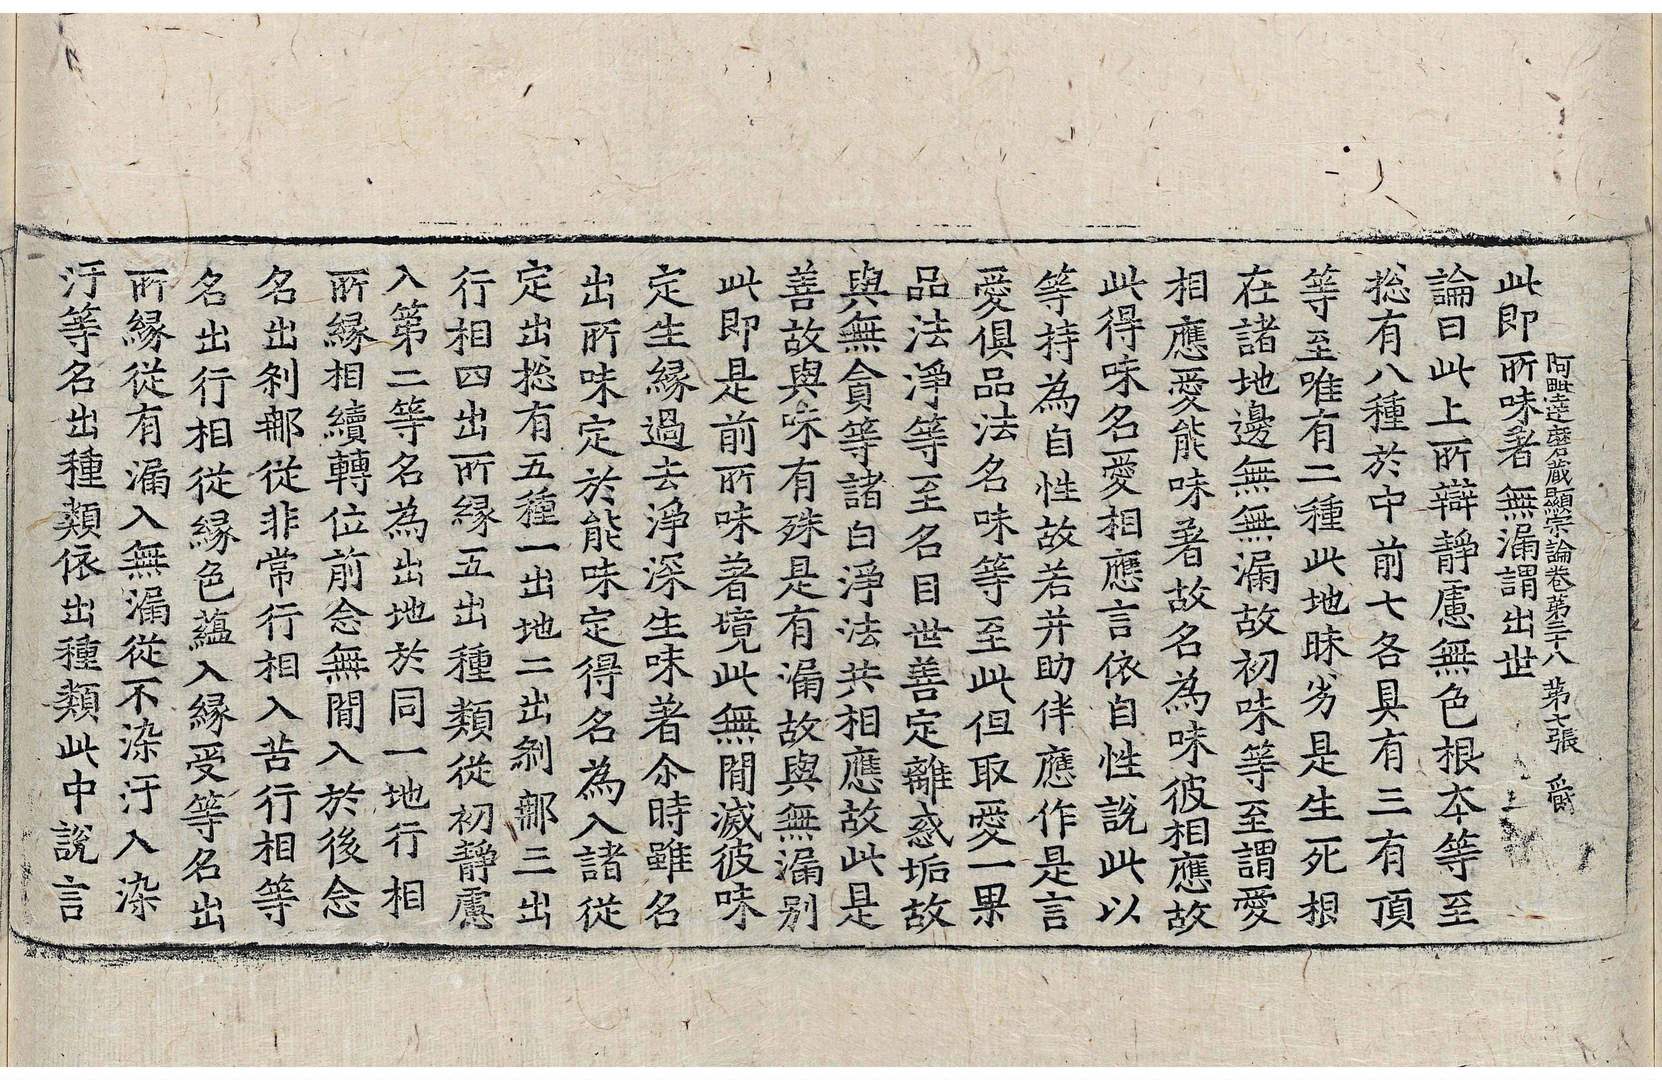 阿毗達磨藏顯宗論卷第三十八 第七張 爵
此即所味著無漏謂出世
論曰此上所辯靜慮無色根本等至
揔有八種於中前七各具有三有頂
等至唯有二種此地昧劣是生死根
在諸地邊無無漏故初味等至謂愛
相應愛能味著故名為味彼相應故
此得味名愛相應言依自性說此以
等持為自性故若并助伴應作是言
愛俱品法名味等至此但取愛一果
品法淨等至名目世善定離惑垢故
與無貪等諸白淨法共相應故此是
善故與味有殊是有漏故與無漏別
此即是前所味著境此無間滅彼味
定生緣過去淨深生味著尒時雖名
出所味定於能味定得名為入諸從
定出揔有五種一出地二出剎那三出
行相四出所緣五出種類從初靜慮
入第二等名為出地於同一地行相
所緣相續轉位前念無間入於後念
名出剎那從非常行相入苦行相等
名出行相從緣色蘊入緣受等名出
所緣從有漏入無漏從不染汙入染
汙等名出種類依出種類此中說言